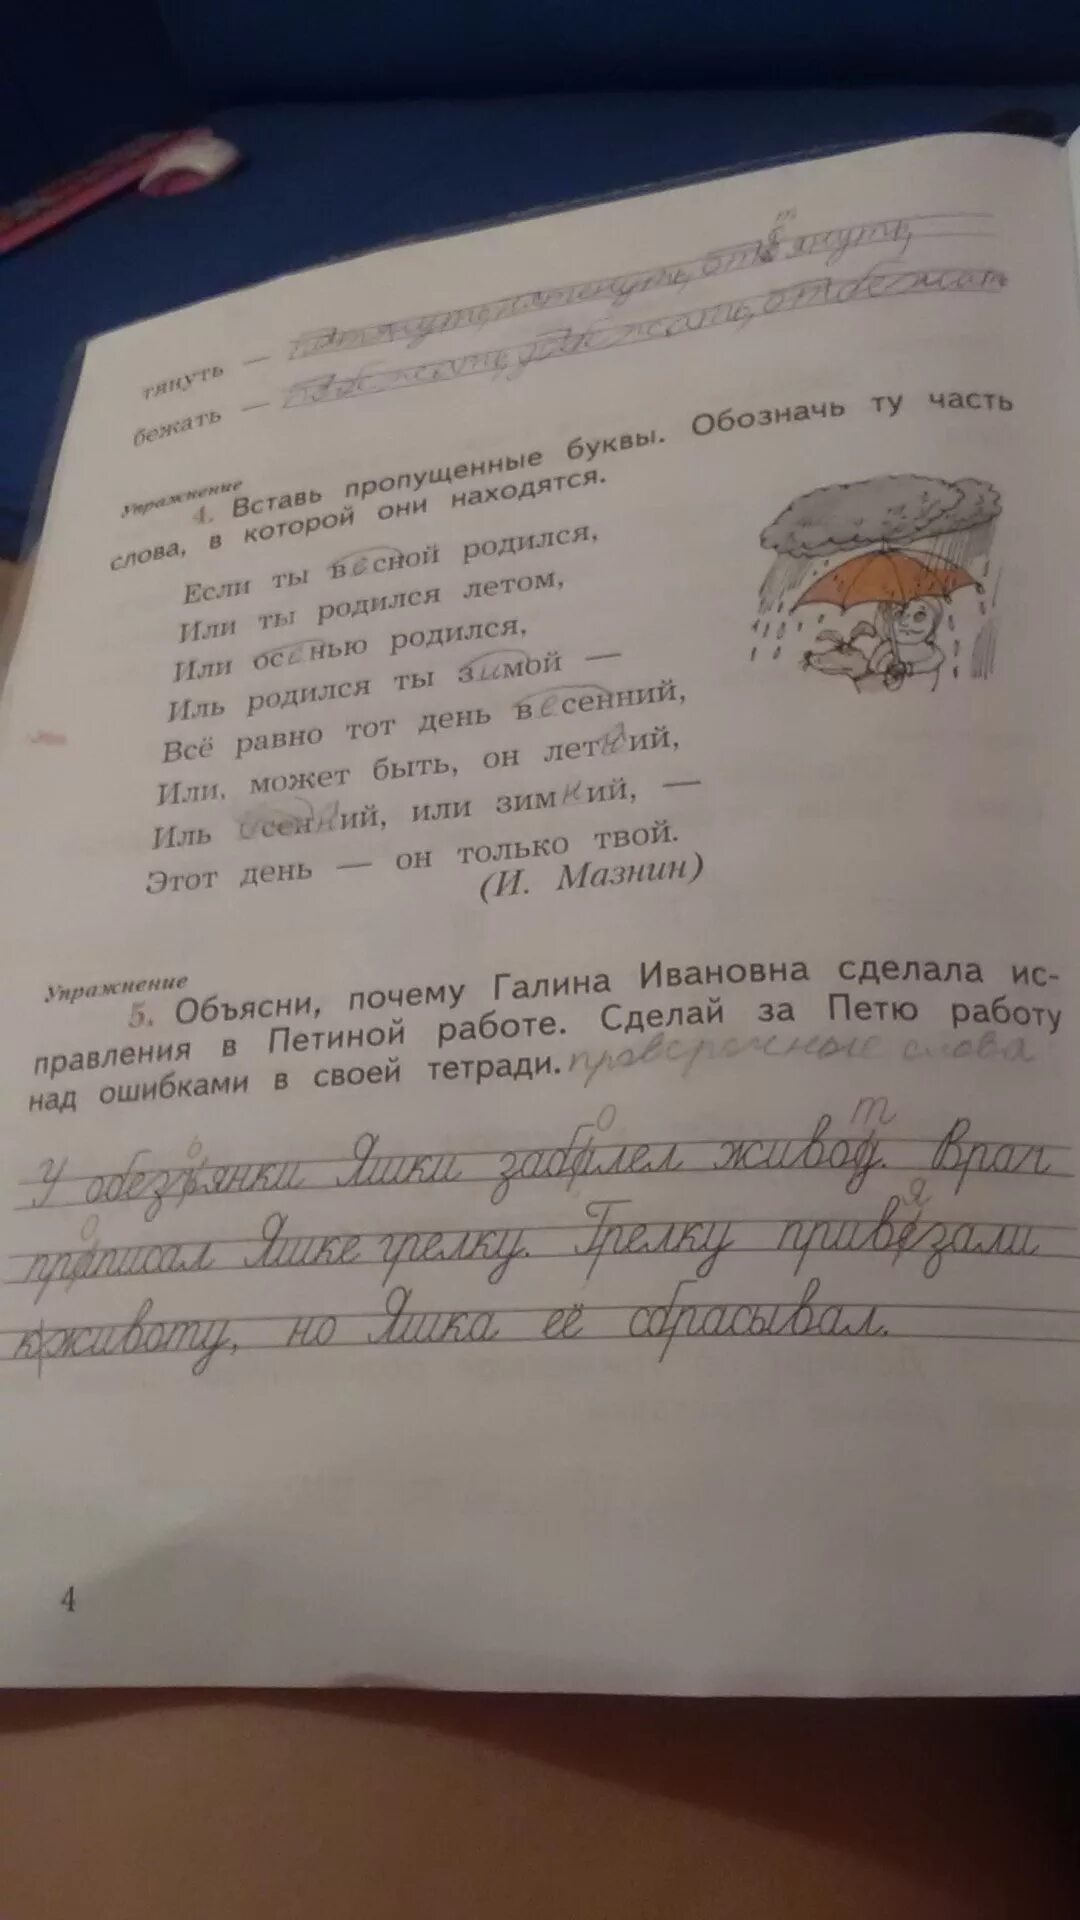 тянуть —
бежать —
Упражнение
4. Вставь пропущенные буквы. Обозначь ту часть
слова, в которой они находятся.
Если ты весной родился,
Или ты родился летом,
Или осенью родился,
Иль родился ты зимой —
Всё равно тот день весенний,
Или, может быть, он летний,
Иль осенний, или зимний, —
Этот день — он только твой.
(И. Мазнин)
Упражнение
5. Объясни, почему Галина Ивановна сделала ис-
правления в Петиной работе. Сделай за Петю работу
над ошибками в своей тетради. проверочные слова
ь о т
У обезъянки Яшки забалел живод. Врач
о я
праписал Яшке грелку. Грелку привезали
к|животу, но Яшка её сбрасывал.
4